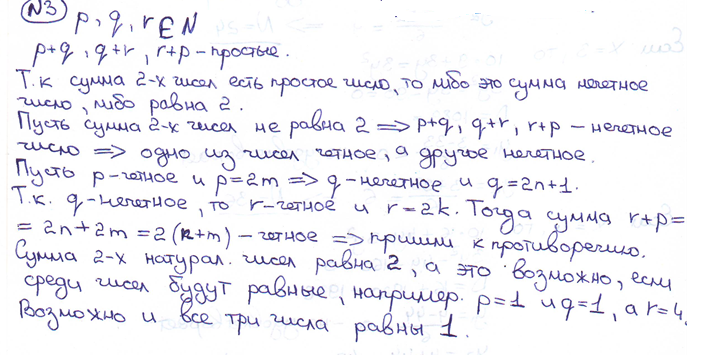 №3 p, q, r ∈ N
p+q, q+r, r+p – простые.
Т.к сумма 2-х чисел есть простое число, то либо это сумма нечетное
число, либо равна 2.
Пусть сумма 2-х чисел не равна 2 ⟹ p+q, q+r, r+p – нечетное
число ⟹ одно из чисел четное, а другое нечетное.
Пусть p-четное и p=2m ⟹ q-нечетное и q=2n+1.
Т.к. q-нечетное, то r-четное и r=2k. Тогда сумма r+p=
= 2n+2m=2(k+m) – четное ⟹ пришли к противоречию.
Сумма 2-х натурал. чисел равна 2, а это возможно, если
среди чисел будут равные, например. p=1 и q=1, а r=4.
Возможно и все три числа равны 1.